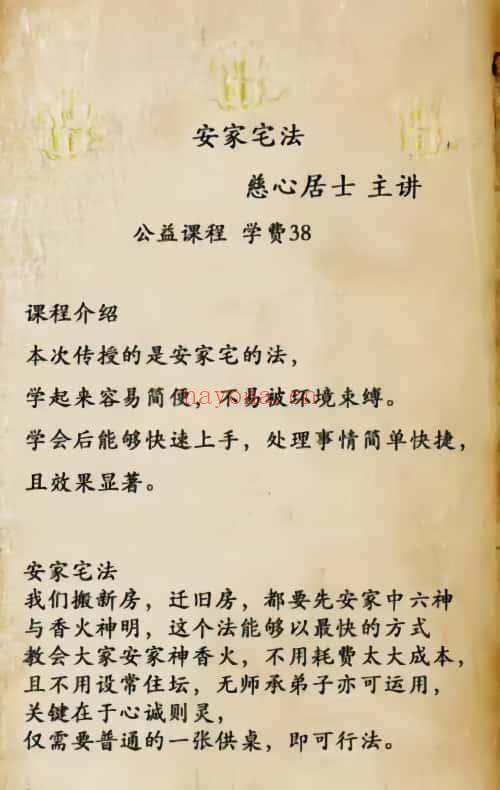 安家宅法
慈心居士 主讲
公益课程 学费38
课程介绍
本次传授的是安家宅的法，
学起来容易简便，不易被环境束缚。
学会后能够快速上手，处理事情简单快捷，
且效果显著。
安家宅法
我们搬新房，迁旧房，都要先安家中六神
与香火神明，这个法能够以最快的方式
教会大家安家神香火，不用耗费太大成本，
且不用设常住坛，无师承弟子亦可运用，
关键在于心诚则灵，
仅需要普通的一张供桌，即可行法。